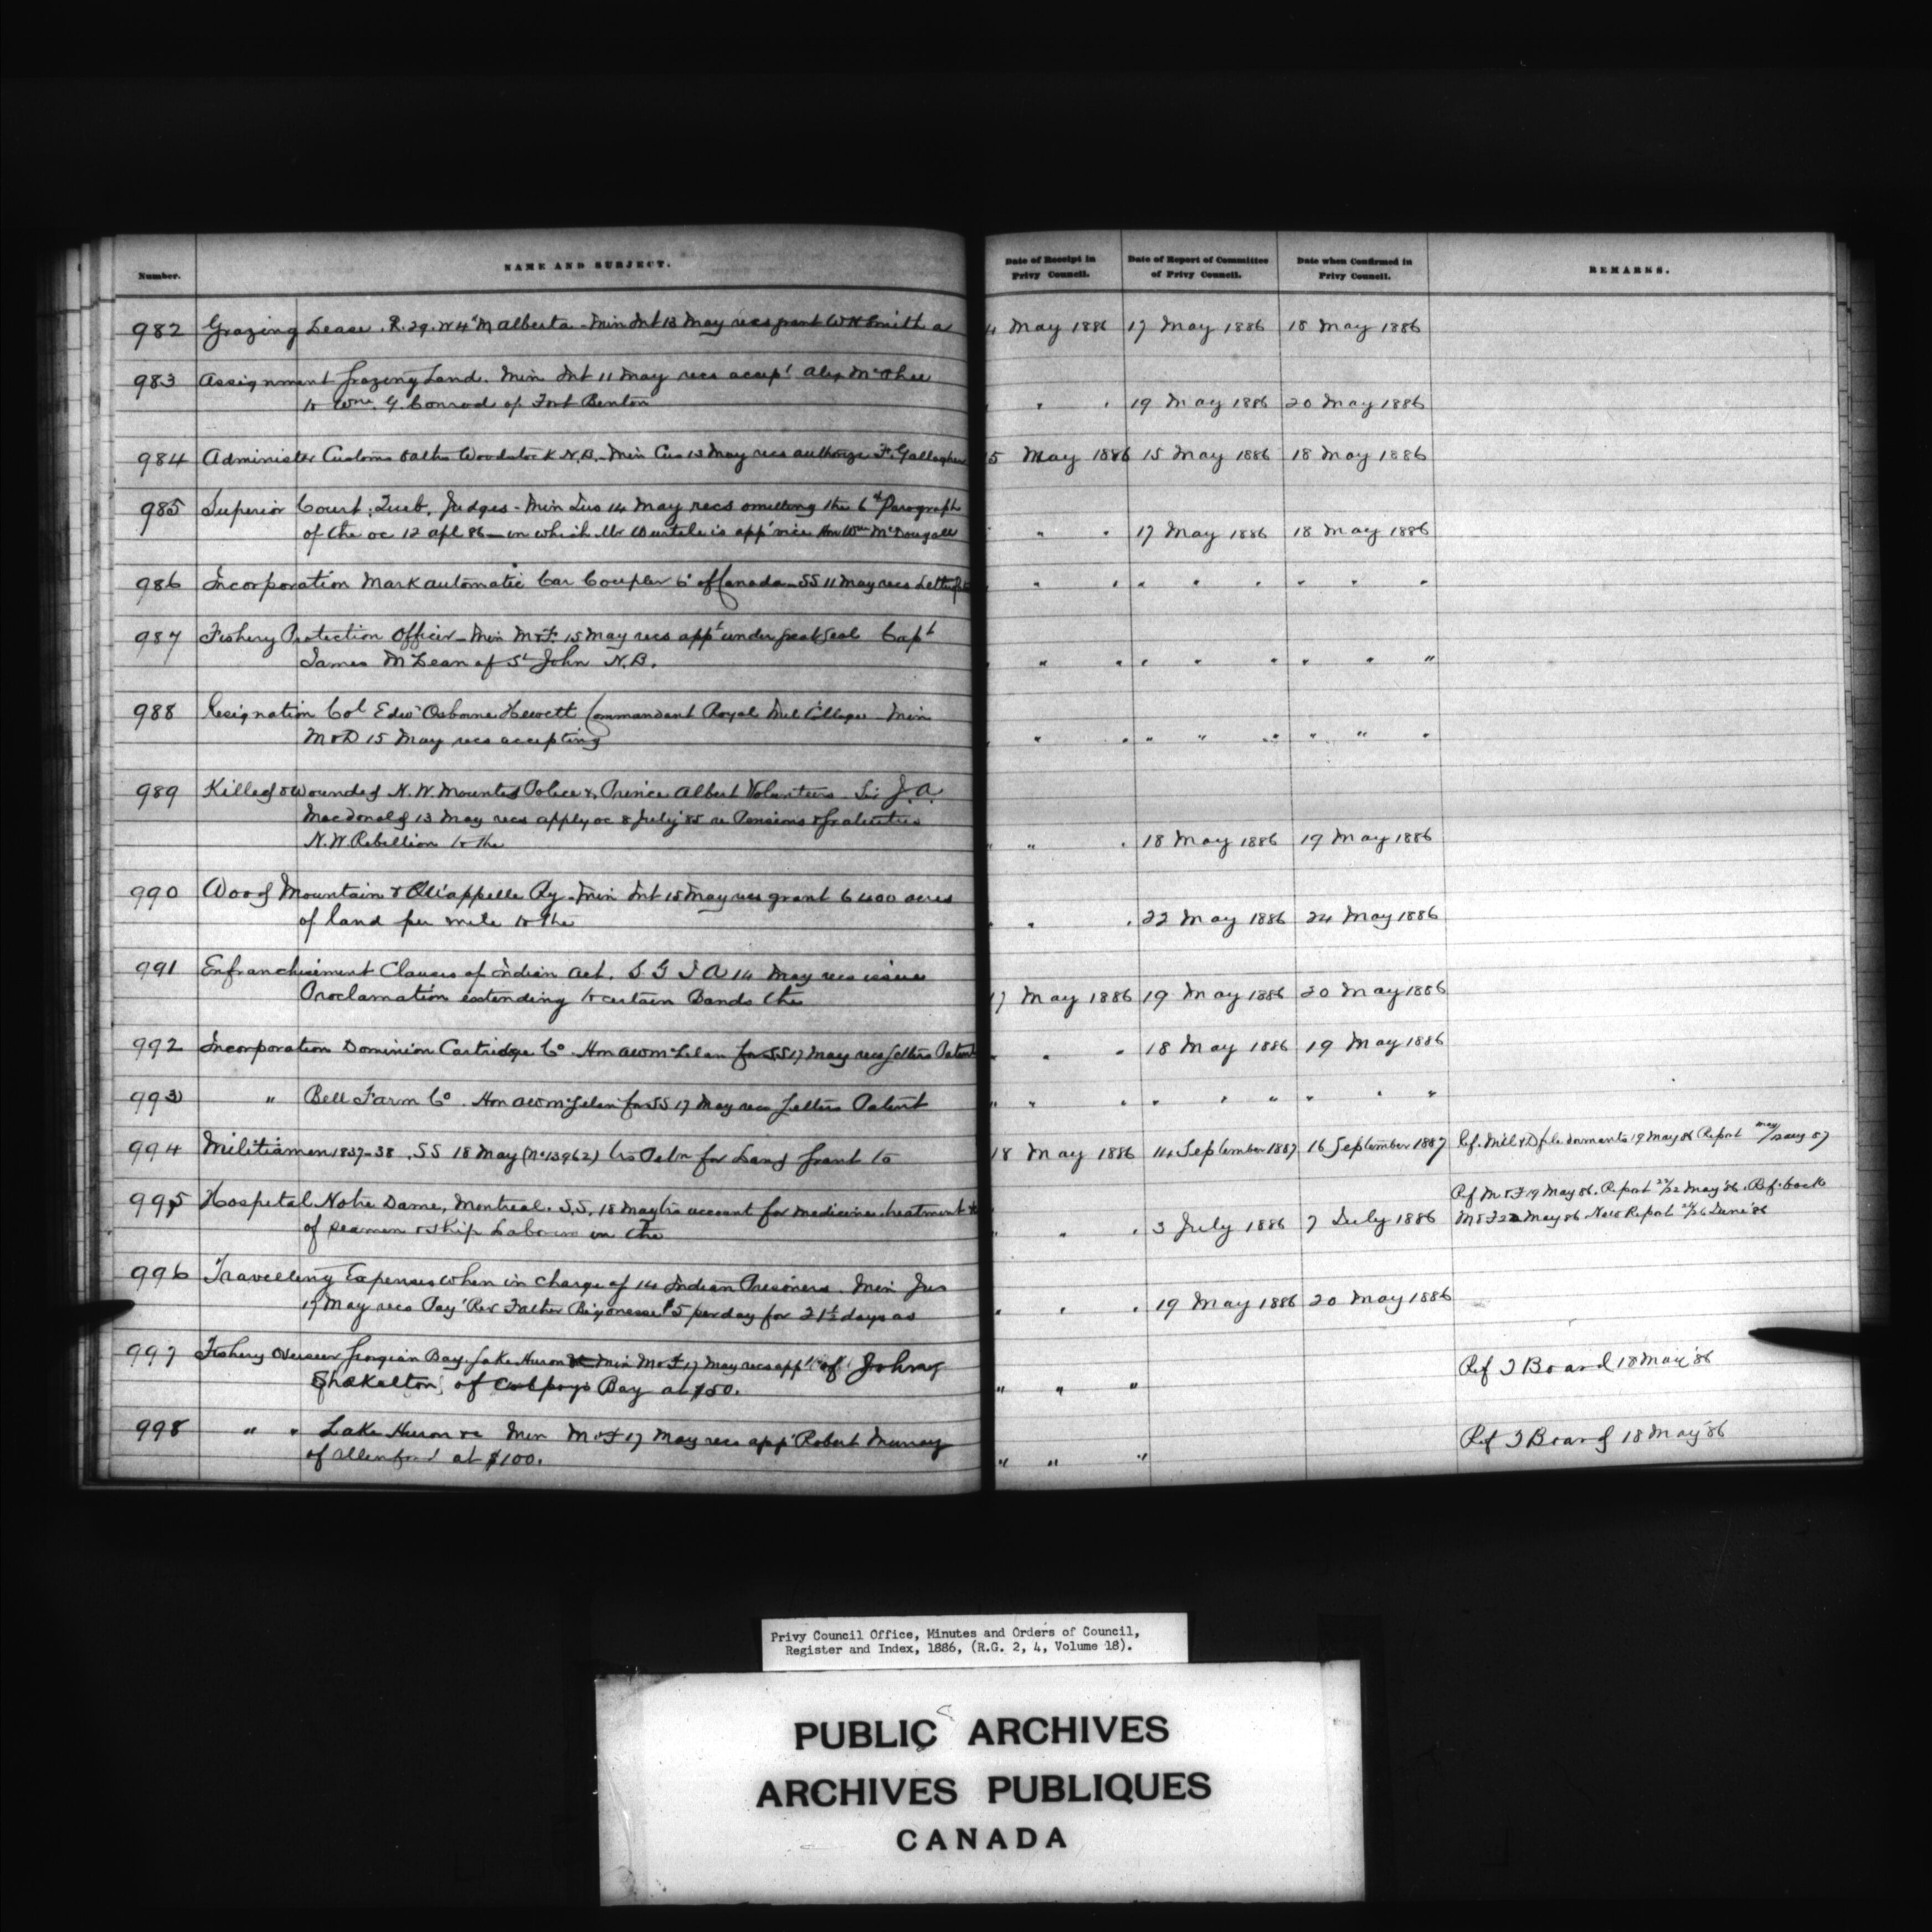 Number. NAME AND SUBJECT. Date of Receipt in Privy Council. Date of Report of Committee of Privy Council. Date when Confirmed in Privy Council. REMARKS.
982 Grazing Lease. R. 29. W 4th M Alberta - Min Int 13 May recs grant W H Smith a 4 May 1886 17 May 1886 18 May 1886
983 Assignment grazing Land. Min Int 11 May recs accept Alex McPhee
to Wm. G. Conrad of Fort Benton " " " 19 May 1886 20 May 1886
984 Administer Customs Oaths Woodstock N.B. - Min Cus 13 May recs authorize F. Gallagher 15 May 1886 15 May 1886 18 May 1886
985 Superior Court, Queb. Judges - Min Jus 14 May recs omitting the 6th Paragraph
of the oc 12 apl 86 - in which Mr Wurtele is appt vice Hon Wm McDougall " " 17 May 1886 18 May 1886
986 Incorporation Mark automatic Car Coupler Co of Canada - SS 11 May recs Letters Pat " " " " " " " "
987 Fishery Protection Officer - Min M & F 15 May recs appt under great Seal Capt
James McLean of St John N.B. " " " " " " " " "
988 Resignation Col Edwd Osborne Hewett Commandant Royal Mil College - Min
M & D 15 May recs accepting " " " " " " " " "
989 Killed & Wounded N.W. Mounted Police & Prince Albert Volunteers Sir J. A.
MacDonald 13 May recs apply oc 8 July '85 re Pensions & gratuities
N.W Rebellion to the " " " 18 May 1886 19 May 1886
990 Wood Mountain & Qu'appelle Ry - Min Int 15 May recs grant 6400 acres
of land per mile to the " " " 22 May 1886 24 May 1886
991 Enfranchisement Clauses of Indian Act. S G I A 14 May recs issue
Proclamation extending to certain Bands the 17 May 1886 19 May 1886 20 May 1886
992 Incorporation Dominion Cartridge Co. Hon AW McLelan for SS 17 May recs Letters Patent " " " 18 May 1886 19 May 1886
993 " Bell Farm Co. Hon AW McLelan for SS 17 May recs Letters Patent " " " " " " " " "
994 Militiamen 1837-38. SS 18 May (No 13962) trs Petn for Land grant to 18 May 1886 14 September 1887 16 September 1887 Ref. Mil & D file dormants 19 May 86 Report
995 Hospital Notre Dame, Montreal. S.S. 18 May trs account for medicine, treatment &c
of seamen & Ship Laborers in the " " " 3 July 1886 7 July 1886 Ref M & F 19 May 86. Report 22/22 May '86. Ref. back
M & F May 86. New Report 26 June '86
996 Travelling Expenses when in charge of 14 Indian Prisoners. Min Jus
17 May recs Pay' Rev Father Bigonesse $5 per day for 21½ days as " " " 19 May 1886 20 May 1886
997 Fishery Overseer Georgian Bay Lake Huron Min M & F 17 May recs appt of John
Shakelton, of Colpoys Bay at $50. " " " Ref T Board 18 May '86
998 " " Lake Huron &c Min M & F 17 May recs appt Robert Murray
of Allenford at $100. " " " Ref T Board 18 May '86
Privy Council Office, Minutes and Orders of Council,
Register and Index, 1886, (R.G. 2, 4, Volume 18).
PUBLIC ARCHIVES
ARCHIVES PUBLIQUES
CANADA